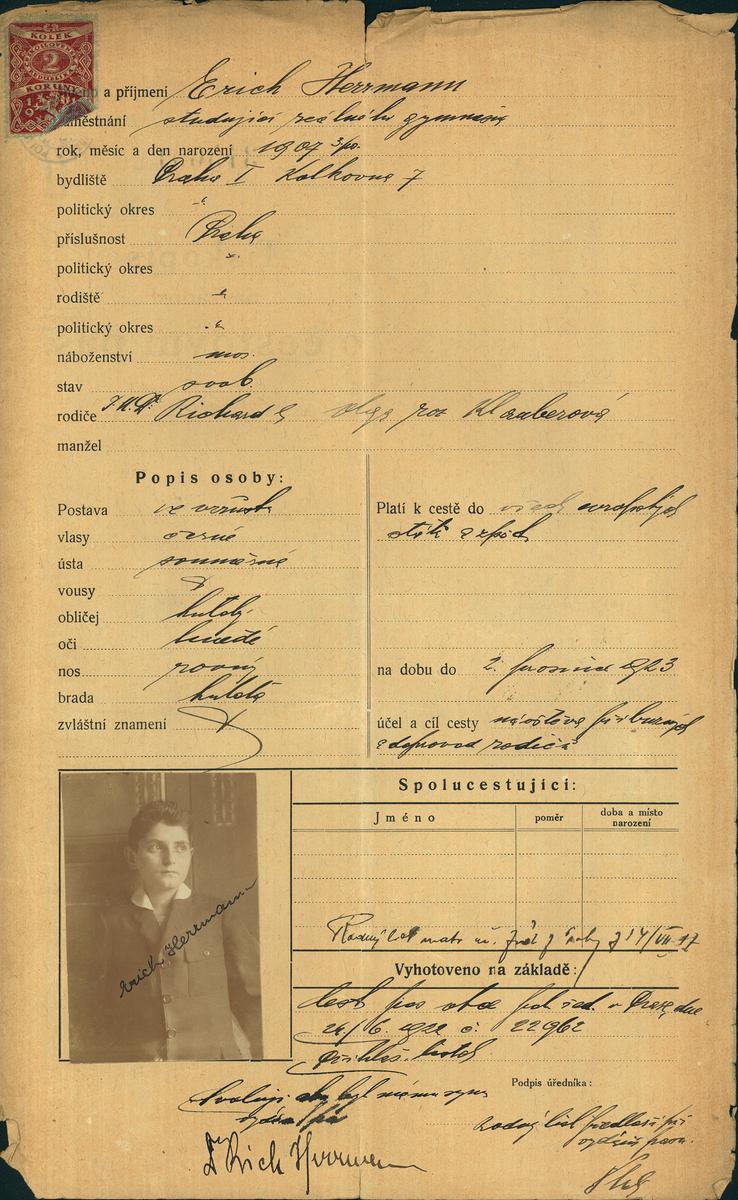 KOLEK
2
KORUNY
a příjmení Erich Herrmann
zaměstnání studující reálného gymnasia
rok, měsíc a den narození 1907
bydliště Praha I Kolkovna 7
politický okres "
příslušnost Praha
politický okres "
rodiště "
politický okres "
náboženství mos.
stav svob.
rodiče J.U.Dr. Richard a Olga roz Klauberová
manžel
Popis osoby:
Postava ve vzrůstu
vlasy černé
ústa souměrné
vousy
obličej kulatý
oči hnědé
nos rovný
brada kulatá
zvláštní znamení
Platí k cestě do všech evropských
států a zpět
na dobu do 2. prosince 1923
účel a cíl cesty návštěva příbuzných
a doprovod rodičů
Spolucestující:
Jméno
poměr
doba a místo
narození
Rodný list matr. ž. 14/VII
Vyhotoveno na základě:
cest. pas pol. řed. v Praze dne
24/6. 1922 č. 22962
Přihláš. lístek
Erich Herrmann
Podpis úředníka:
Svoluji aby byl mému synu
vydán pas
Rodný list předloží při
vydání pasu.
Dr Rich Herrmann